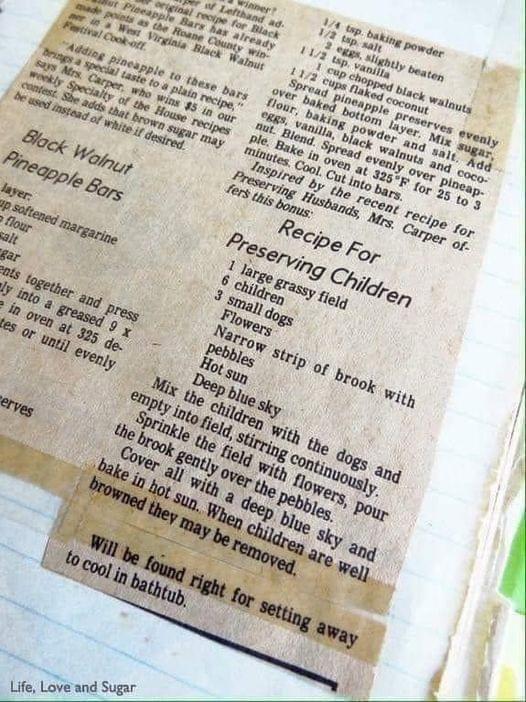 winner?
of Letthand ad-
original recipe for Black
Pineapple Bars has already
made points as the Roane County win-
ner in a West Virginia Black Walnut
Festival Cook-off.
"Adding pineapple to these bars
brings a special taste to a plain recipe,"
says Mrs. Carper, who wins $5 in our
weekly Specialty of the House recipes
contest. She adds that brown sugar may
be used instead of white if desired.
Black Walnut
Pineapple Bars
layer:
up softened margarine
flour
salt
gar
ents together and press
ly into a greased 9 x
in oven at 325 de-
tes or until evenly
erves
1/4 tsp. baking powder
1/2 tsp. salt
2 eggs, slightly beaten
1 1/2 tsp. vanilla
1 cup chopped black walnuts
1 1/2 cups flaked coconut
Spread pineapple preserves evenly
over baked bottom layer. Mix sugar,
flour, baking powder and salt. Add
eggs, vanilla, black walnuts and coco-
nut. Blend. Spread evenly over pineap-
ple. Bake in oven at 325°F for 25 to 3
minutes. Cool. Cut into bars.
Inspired by the recent recipe for
Preserving Husbands, Mrs. Carper of-
fers this bonus:
Recipe For
Preserving Children
1 large grassy field
6 children
3 small dogs
Flowers
Narrow strip of brook with
pebbles
Hot sun
Deep blue sky
Mix the children with the dogs and
empty into field, stirring continuously.
Sprinkle the field with flowers, pour
the brook gently over the pebbles.
Cover all with a deep blue sky and
bake in hot sun. When children are well
browned they may be removed.
Will be found right for setting away
to cool in bathtub.
Life, Love and Sugar